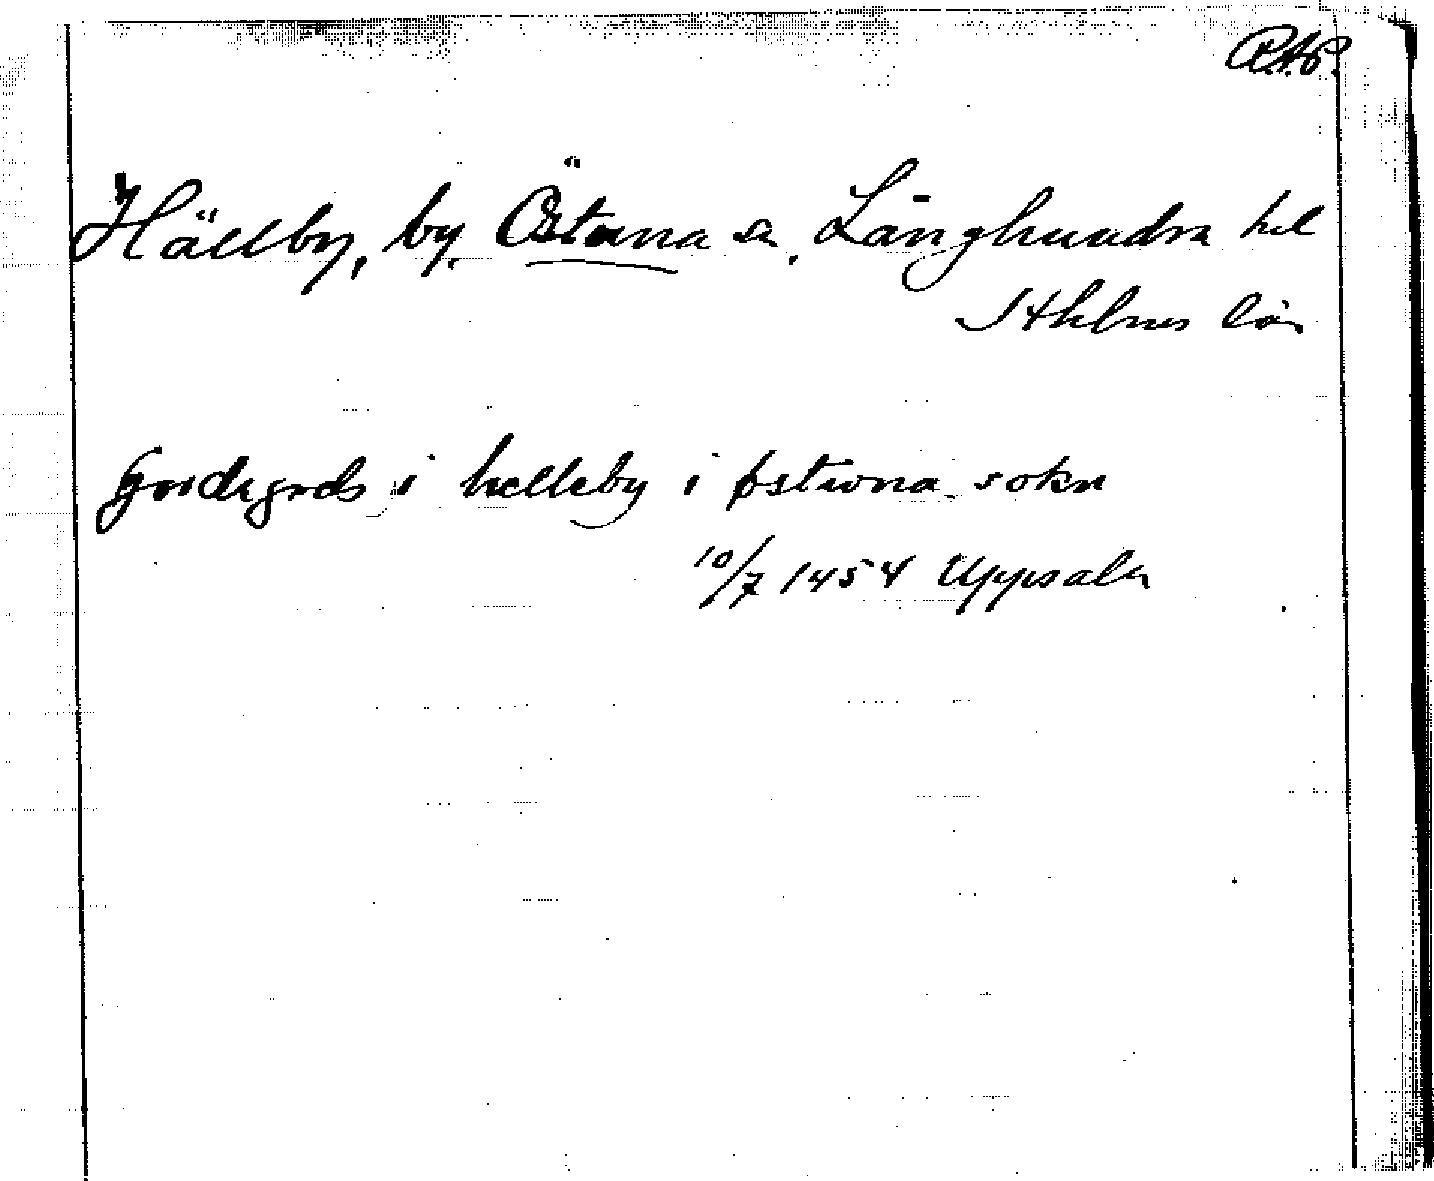 R.A.P.
Hällby, by. Östuna sn, Långhundra hd
Sthlms län
i helleby i østwna sokn
10/7 1454 Uppsala